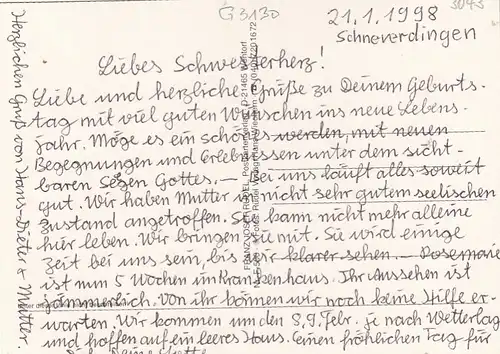 G 3130
3043
21.1.1998
Schneverdingen
Liebes Schwesterherz!
Liebe und herzliche Grüße zu Deinem Geburts-
tag mit viel guten Wünschen ins neue Lebens-
jahr. Möge es ein schönes werden, mit neuen
Begegnungen und Erlebnissen unter dem sicht-
baren Segen Gottes. — Bei uns läuft alles soweit
gut. Wir haben Mutter in nicht sehr gutem seelischen
Zustand angetroffen. Sie kann nicht mehr alleine
hier leben. Wir bringen sie mit. Sie wird einige
Zeit bei uns sein, bis wir klarer sehen. — Rosemarie
ist nun 5 Wochen im Krankenhaus. Ihr Aussehen ist
jämmerlich. Von ihr können wir noch keine Hilfe er-
warten. Wir kommen um den 8./9. Febr. je nach Wetterlag
und hoffen auf ein leeres Haus. Einen fröhlichen Tag für
Herzlichen Gruß von Hans-Dieter & Mutter.
D-21465